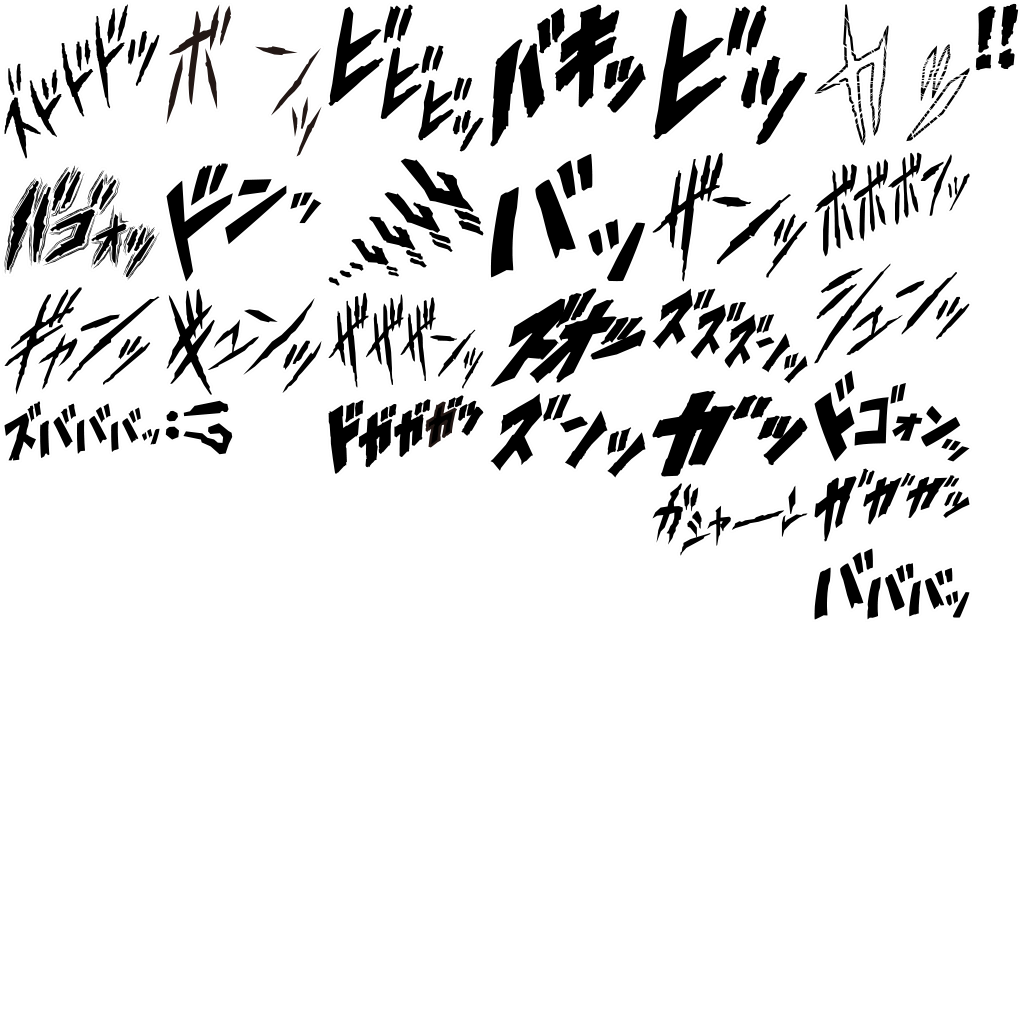 ズドドドッ
ボンッ
ビビビッ
バキッ
ビッ
カッ
!!
バゴォッ
ドンッ
バッ
ザーンッ
ボボボンッ
ギャンッ
ギュンッ
ザザザーンッ
ズオッ
ズズズーンッ
シュンッ
ズバババッ
ドガガガッ
ズンッ
ガッ
ドゴォン
ガシャーン
ガガガッ
バババッ